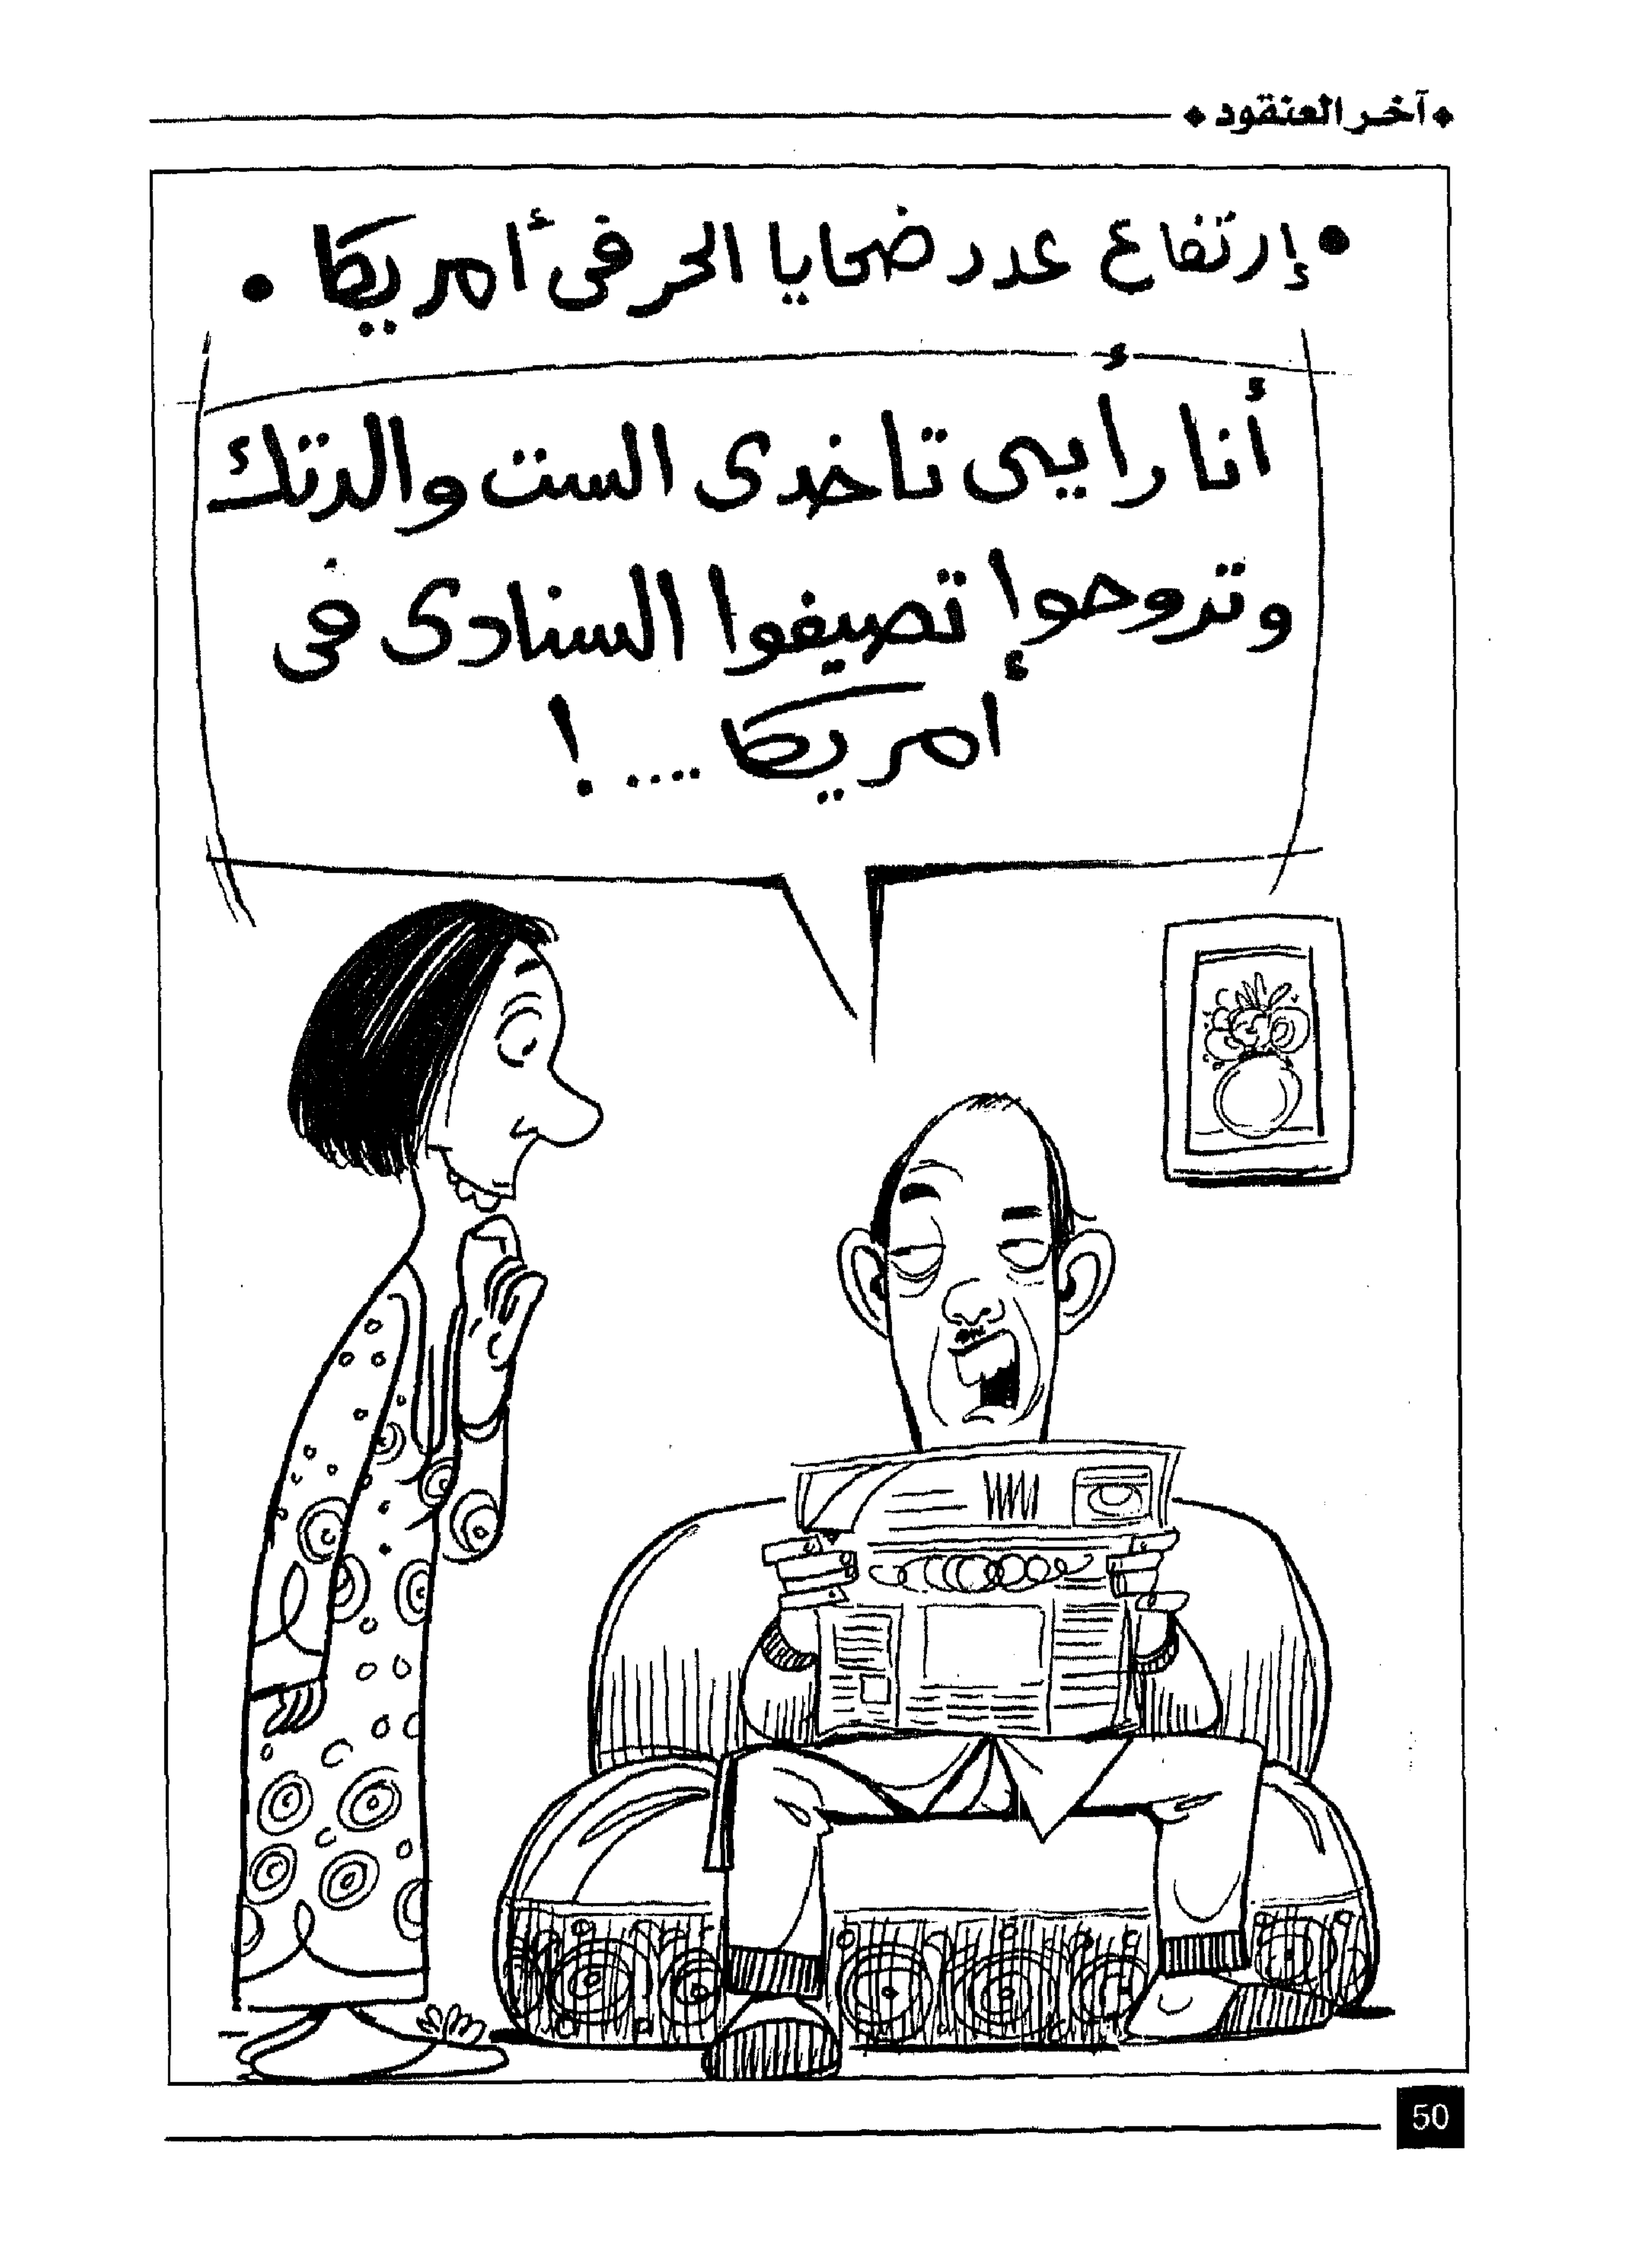 آخر العنقود
• إرتفاع عدد ضحايا الحر فى أمريكا •
أنا رأيى تاخدى الست والدتك
وتروحوا تصيفوا السنادى فى
أمريكا .... !
50